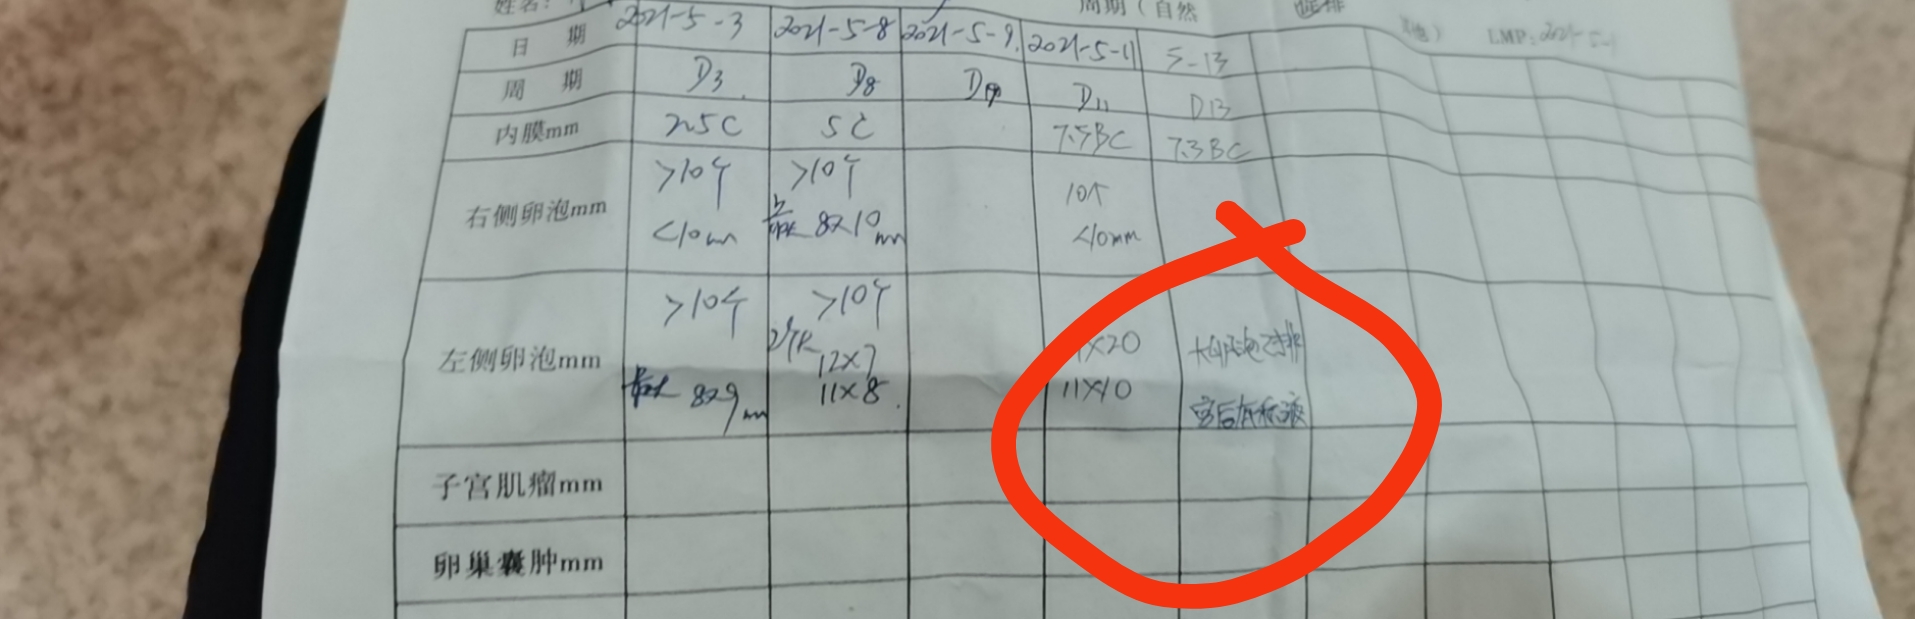 姓名:
周期(自然
促排
他)
LMP:2021-5-1
日 期 2021-5-3 2021-5-8 2021-5-9. 2021-5-11 5-13
周 期 D3 D8 D9 D11 D13
内膜mm 2.5C 5C 7.5BC 7.3BC
右侧卵泡mm >10个 >10个 10个
<10mm 最大 8x10mm <10mm
左侧卵泡mm >10个 >10个 x20 大卵泡已排
最大 8x9mm 2个大 12x7 11x10 宫后有积液
11x8.
子宫肌瘤mm
卵巢囊肿mm